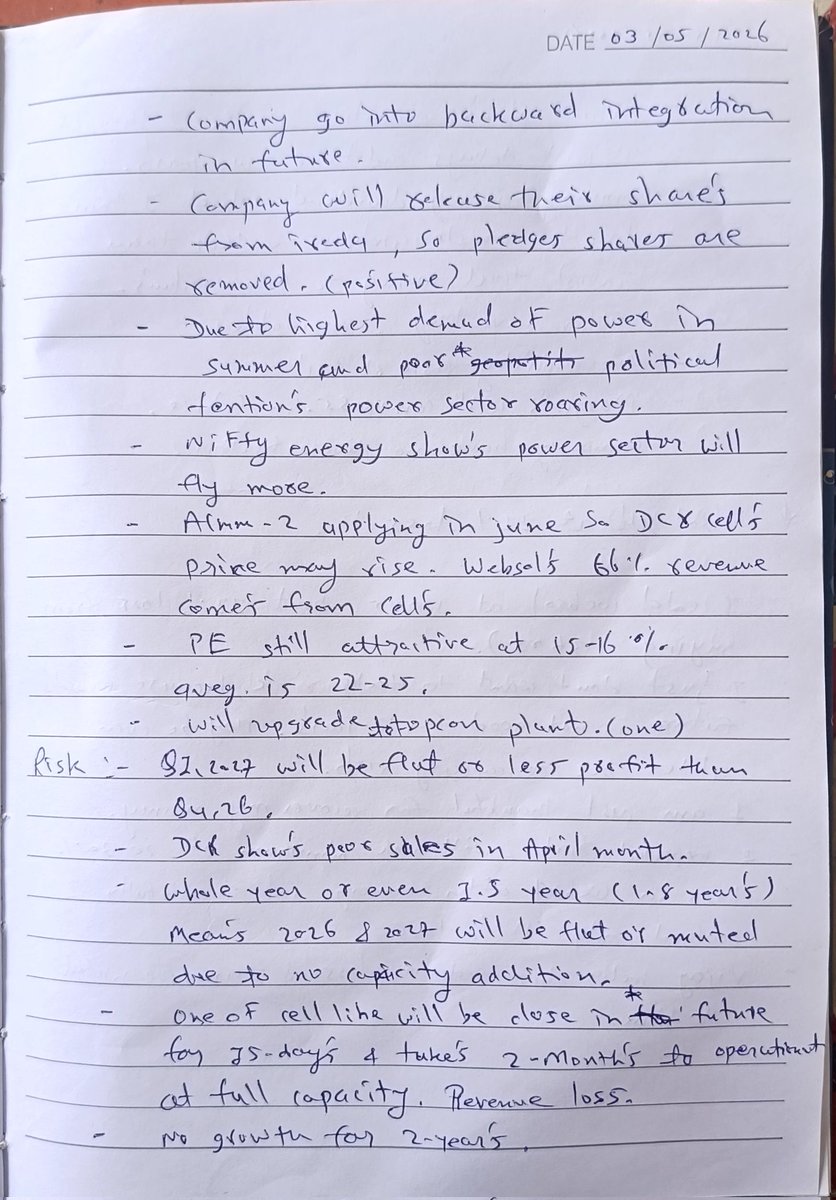 DATE 03/05/2026
- Company go into backward integration
in future.
- Company will release their share's
from ireda, so pledges shares are
removed. (positive)
- Due to highest demad of power in
summer and poor* political
tention's power sector roaring.
- Nifty energy show's power sector will
fly more.
- Almm-2 applying in june so DCR cell's
prine may rise. Websol's 66% revenue
come's from cell's.
- PE still attractive at 15-16 %.
aveg. is 22-25.
- will upgrade to topcon plant. (one)
Risk :- Q1, 2027 will be flat or less profit than
Q4, 26.
- DCR show's poor sales in April month.
- whole year or even 1.5 year (1.8 year's)
Mean's 2026 & 2027 will be flat or muted
due to no capacity addition.
- One of cell line will be close in* future
for 75-day's & take's 2-Month's to operational
at full capacity. Revenue loss.
- No growth for 2-year's.